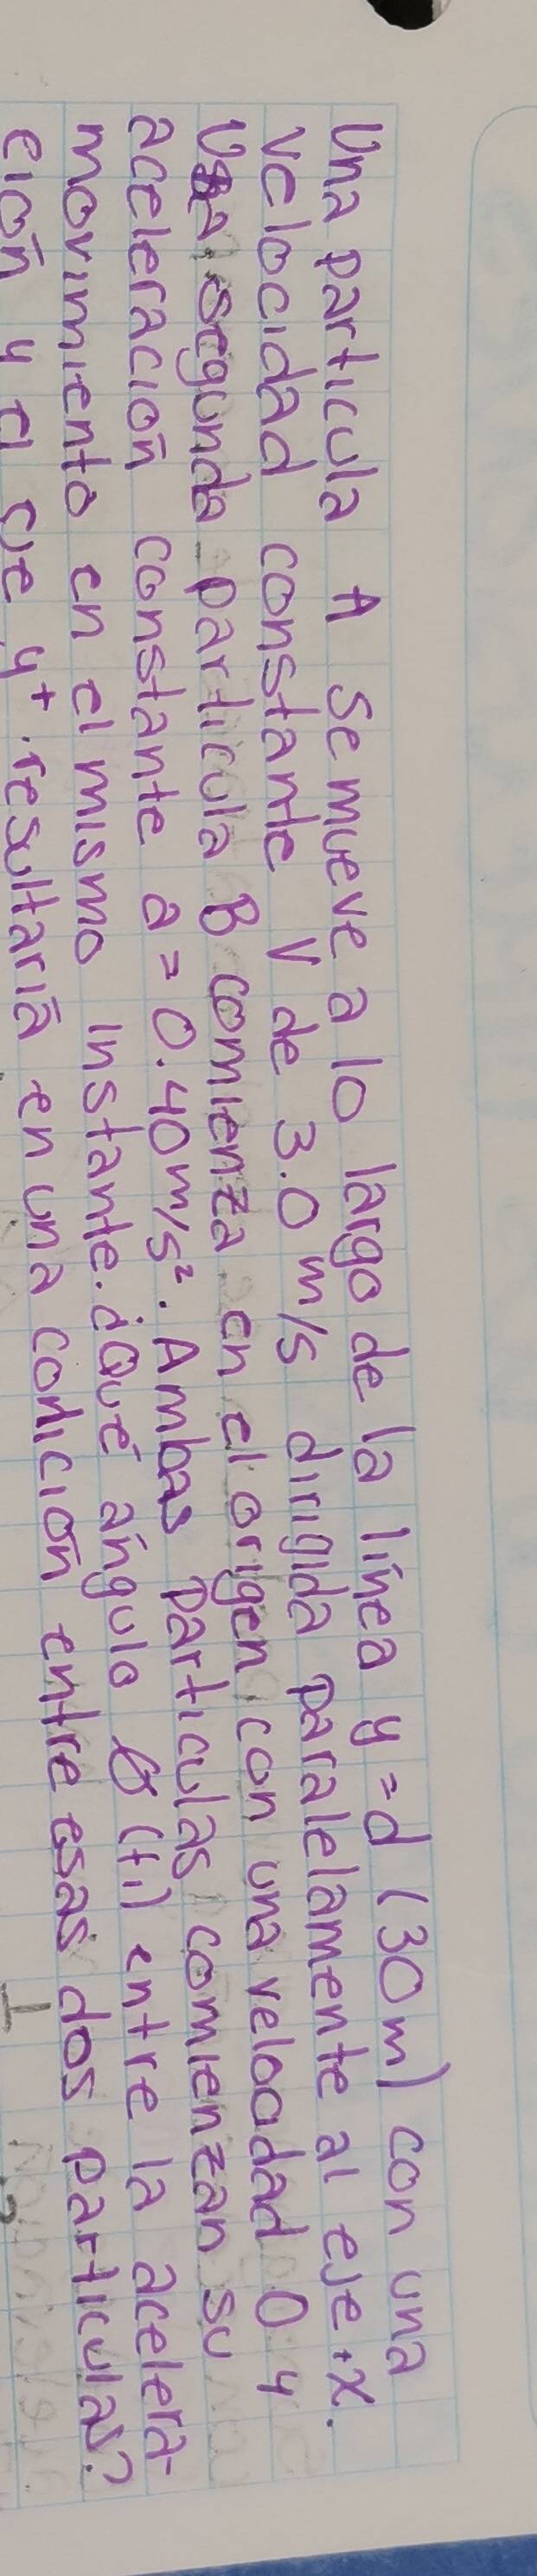 Una particula A se mueve a lo largo de la línea y=d (30m) con una
velocidad constante V de 3.0 m/s dirigida paralelamente al eje +x.
Una segunda particula B comienza en el origen con una velocidad 0 y
aceleración constante a=0.40m/s². Ambas particulas comienzan su
movimiento en el mismo instante. ¿Qué ángulo θ (+,) entre la acelera-
ción y el eje y+ resultaría en una colición entre esas dos particulas?